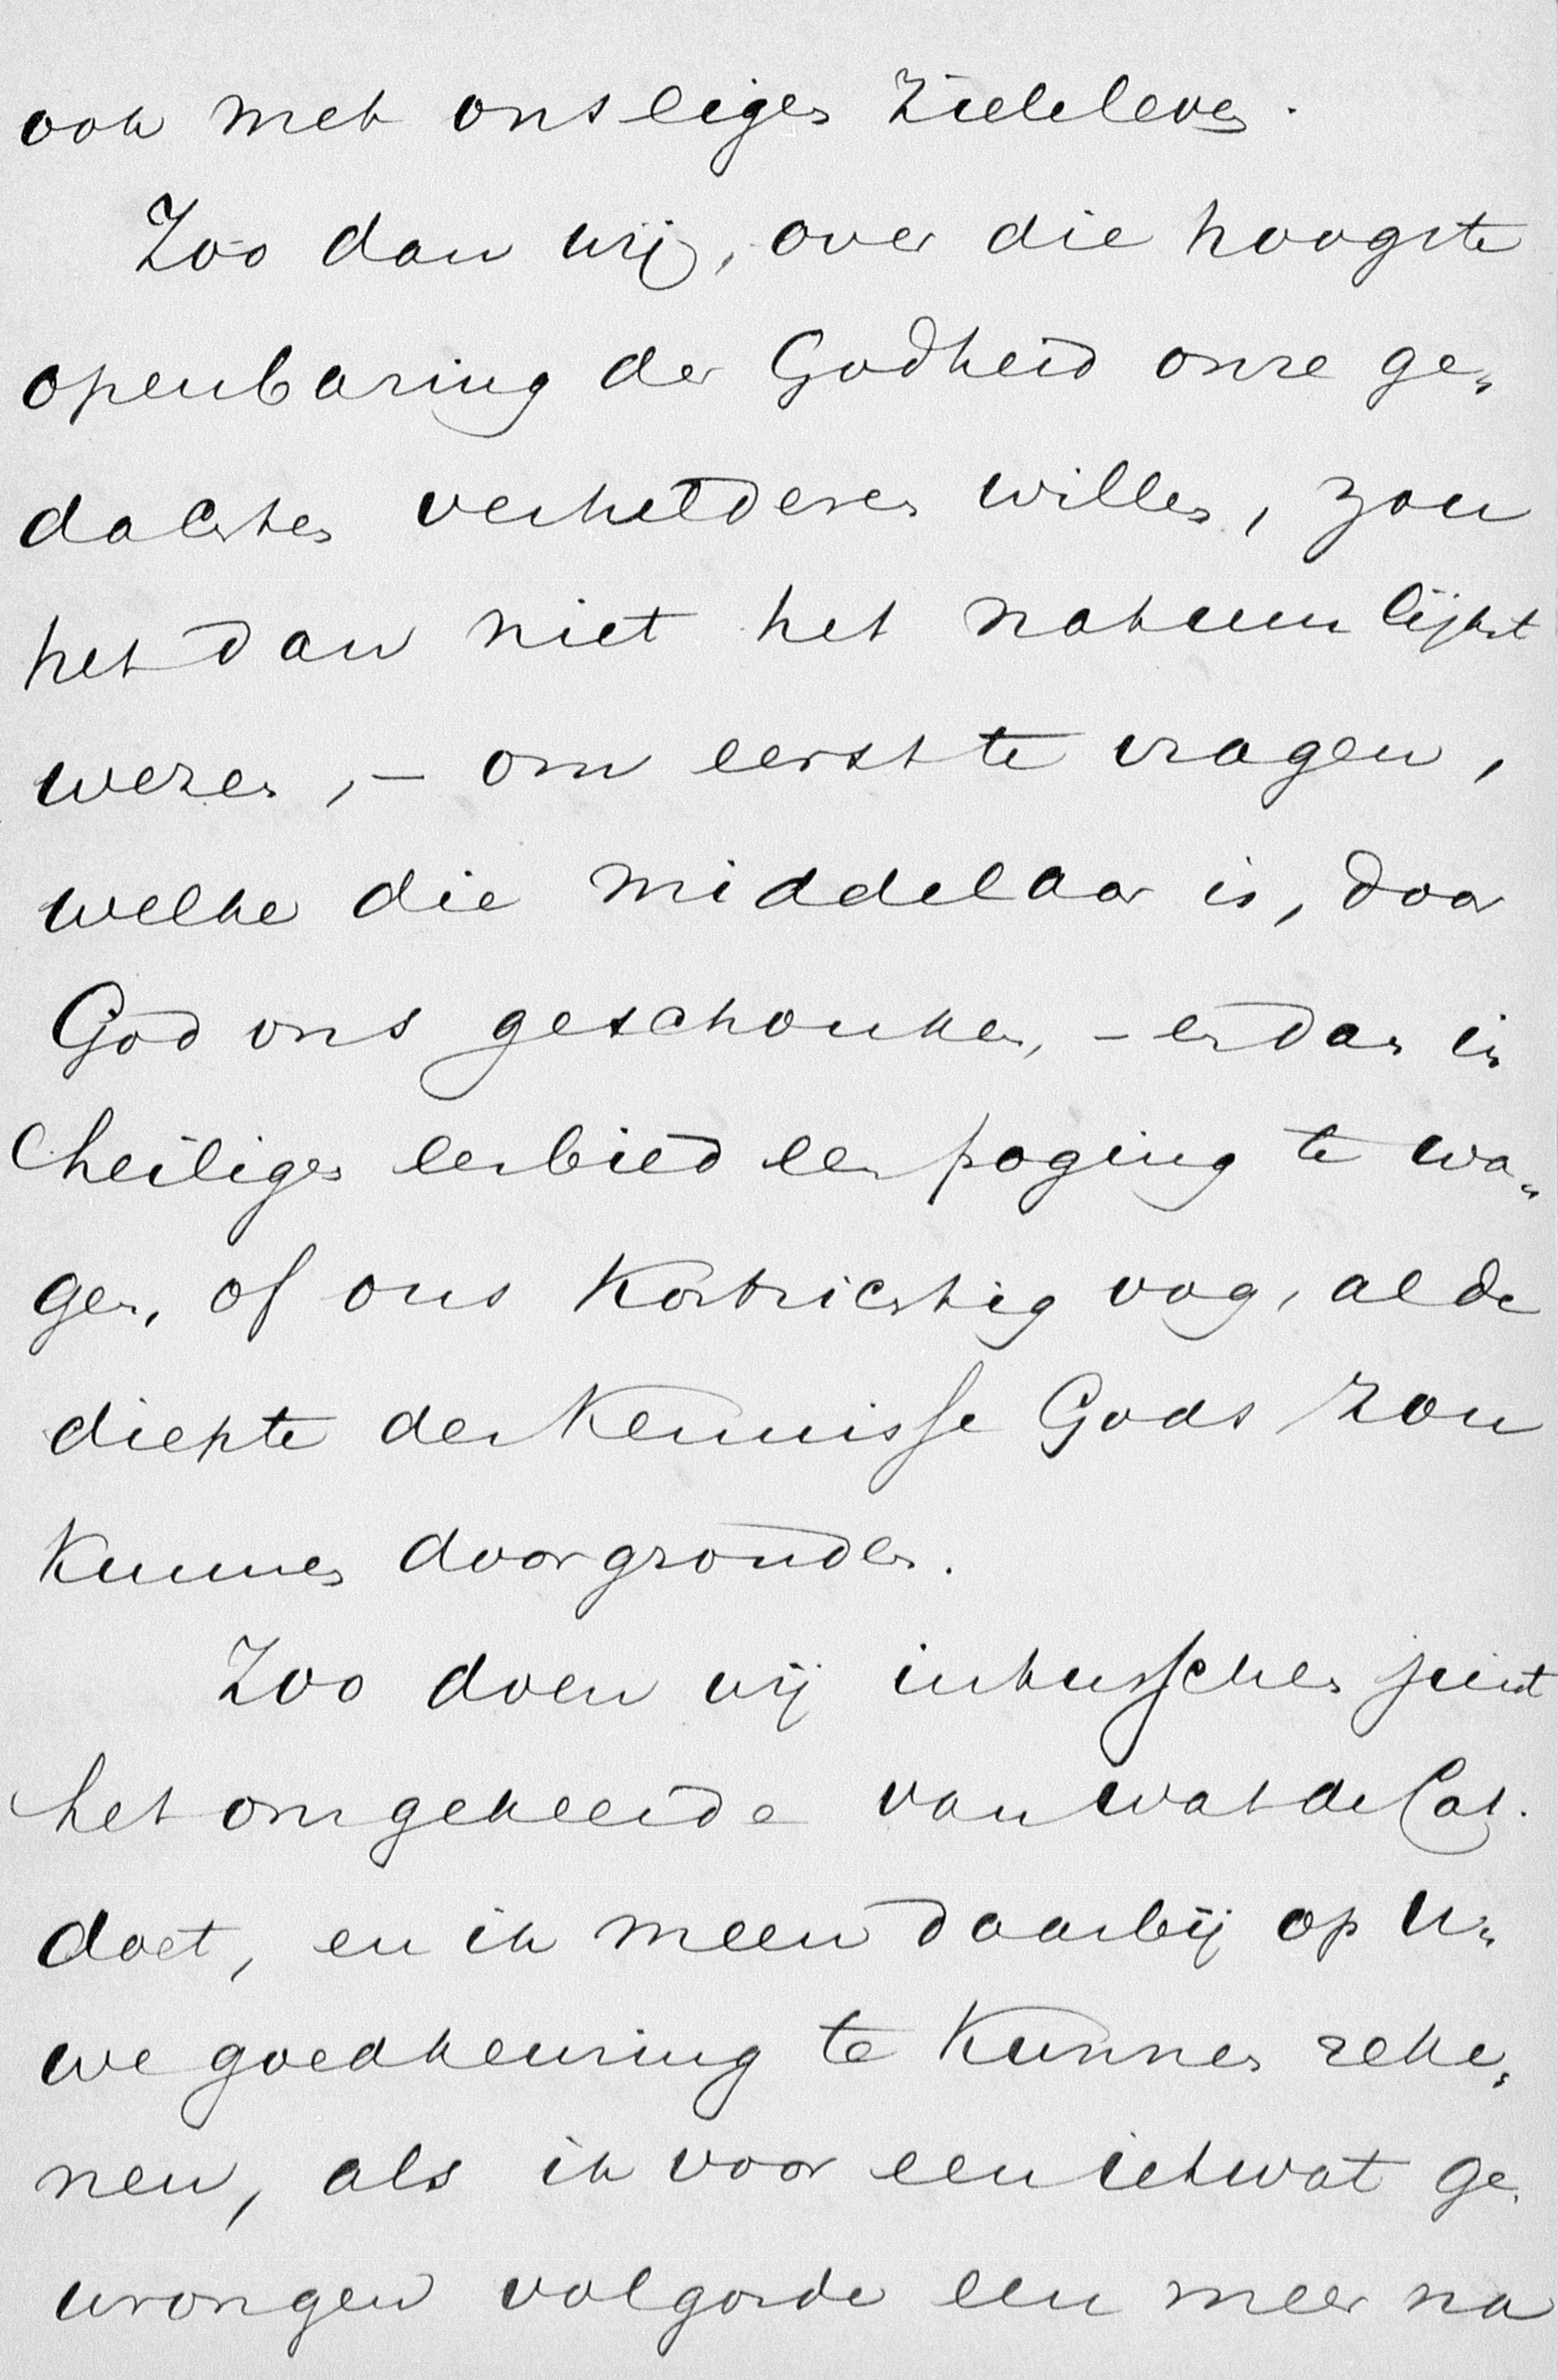 ook met ons eigen zieleleven.
Zoo dan wij, over die hoogste
openbaring der Godheid onze ge„
dachten verhelderen willen, zou
het dan niet het natuurlijkst
wezen, – om eerst te vragen,
welke die middelaar is, door
God ons geschonken, – en dan in
heiligen eerbied een poging te wa„
gen, of ons kortzichtig oog, al de
diepte der kennisse Gods zou
kunnen doorgronden.
Zoo doen wij intusschen juist
het omgekeerde van wat de Cat.
doet, en ik meen daarbij op u„
we goedkeuring te kunnen reke„
nen, als ik voor een ietwat ge„
wrongen volgorde een meer na